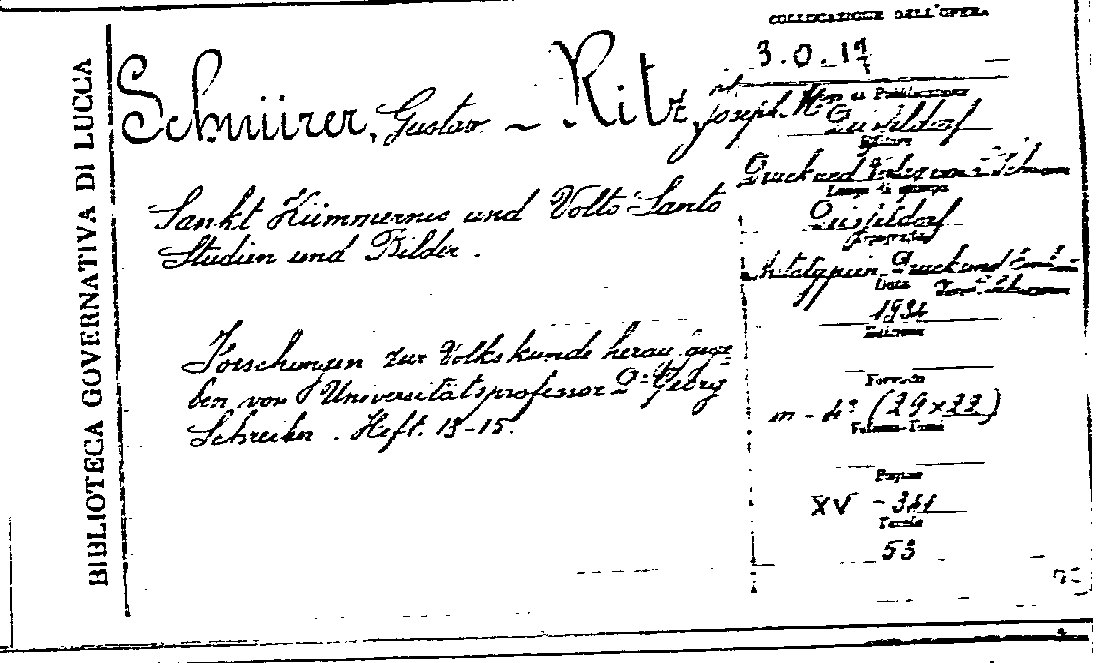 BIBLIOTECA GOVERNATIVA DI LUCCA
COLLOCAZIONE DELL'OPERA
3.0.17
Schnürer, Gustav - Ritz, Joseph. M.
Luogo di Pubblicazione
Düsseldorf
Editore
Druck und Verlag von L. Schwann
Luogo di stampa
Düsseldorf
Tipografia
Autotypien, Druck und
Data
1934
Edizione
Sankt Kümmernis und Volto Santo
Studien und Bilder.
Forschungen zur Volkskunde herausgege-
ben von Universitätsprofessor Dr. Georg
Schreiber. Heft. 13-15.
Formato
in - 4° (29x22)
Volumi-Tomi
Pagine
XV - 341
Tavole
53